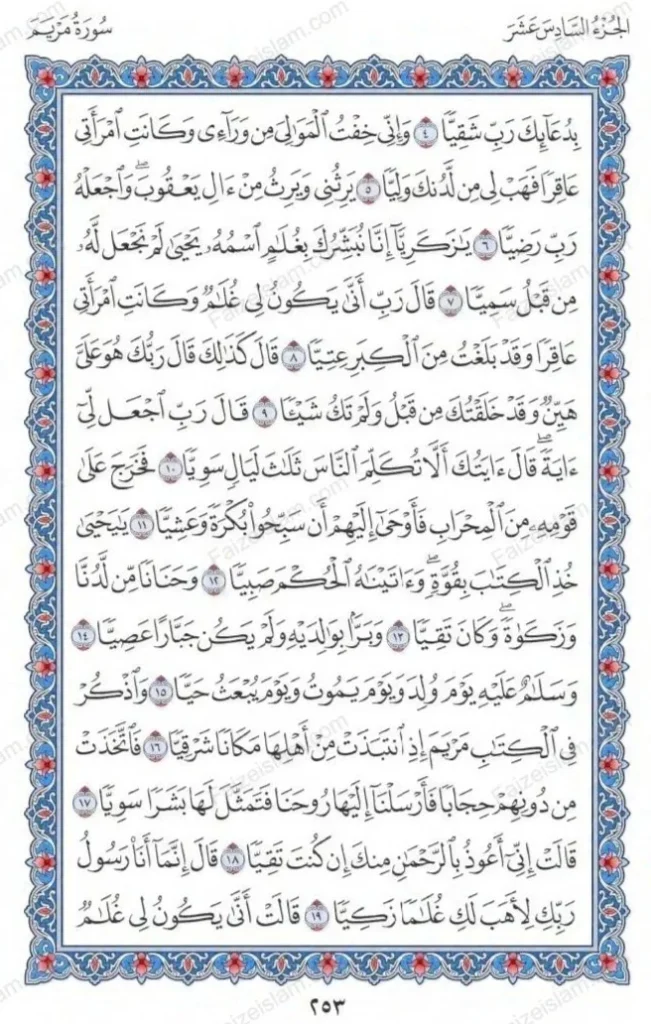 الجُزْءُ السَّادِسَ عَشَرَ
سُورَةُ مَرْيَمَ
بِدُعَآئِكَ رَبِّ شَقِيًّا ٤ وَإِنِّى خِفْتُ ٱلْمَوَٰلِىَ مِن وَرَآءِى وَكَانَتِ ٱمْرَأَتِى
عَاقِرًا فَهَبْ لِى مِن لَّدُنكَ وَلِيًّا ٥ يَرِثُنِى وَيَرِثُ مِنْ ءَالِ يَعْقُوبَ ۖ وَٱجْعَلْهُ
رَبِّ رَضِيًّا ٦ يَٰزَكَرِيَّآ إِنَّا نُبَشِّرُكَ بِغُلَٰمٍ ٱسْمُهُۥ يَحْيَىٰ لَمْ نَجْعَل لَّهُۥ
مِن قَبْلُ سَمِيًّا ٧ قَالَ رَبِّ أَنَّىٰ يَكُونُ لِى غُلَٰمٌ وَكَانَتِ ٱمْرَأَتِى
عَاقِرًا وَقَدْ بَلَغْتُ مِنَ ٱلْكِبَرِ عِتِيًّا ٨ قَالَ كَذَٰلِكَ قَالَ رَبُّكَ هُوَ عَلَىَّ
هَيِّنٌ وَقَدْ خَلَقْتُكَ مِن قَبْلُ وَلَمْ تَكُ شَيْـًٔا ٩ قَالَ رَبِّ ٱجْعَل لِّىٓ
ءَايَةً ۚ قَالَ ءَايَتُكَ أَلَّا تُكَلِّمَ ٱلنَّاسَ ثَلَٰثَ لَيَالٍ سَوِيًّا ١٠ فَخَرَجَ عَلَىٰ
قَوْمِهِۦ مِنَ ٱلْمِحْرَابِ فَأَوْحَىٰٓ إِلَيْهِمْ أَن سَبِّحُوا۟ بُكْرَةً وَعَشِيًّا ١١ يَٰيَحْيَىٰ
خُذِ ٱلْكِتَٰبَ بِقُوَّةٍ ۖ وَءَاتَيْنَٰهُ ٱلْحُكْمَ صَبِيًّا ١٢ وَحَنَانًا مِّن لَّدُنَّا
وَزَكَوٰةً ۖ وَكَانَ تَقِيًّا ١٣ وَبَرًّۢا بِوَٰلِدَيْهِ وَلَمْ يَكُن جَبَّارًا عَصِيًّا ١٤
وَسَلَٰمٌ عَلَيْهِ يَوْمَ وُلِدَ وَيَوْمَ يَمُوتُ وَيَوْمَ يُبْعَثُ حَيًّا ١٥ وَٱذْكُرْ
فِى ٱلْكِتَٰبِ مَرْيَمَ إِذِ ٱنتَبَذَتْ مِنْ أَهْلِهَا مَكَانًا شَرْقِيًّا ١٦ فَٱتَّخَذَتْ
مِن دُونِهِمْ حِجَابًا فَأَرْسَلْنَآ إِلَيْهَا رُوحَنَا فَتَمَثَّلَ لَهَا بَشَرًا سَوِيًّا ١٧
قَالَتْ إِنِّىٓ أَعُوذُ بِٱلرَّحْمَٰنِ مِنكَ إِن كُنتَ تَقِيًّا ١٨ قَالَ إِنَّمَآ أَنَا۠ رَسُولُ
رَبِّكِ لِأَهَبَ لَكِ غُلَٰمًا زَكِيًّا ١٩ قَالَتْ أَنَّىٰ يَكُونُ لِى غُلَٰمٌ
٢٥٣
Faizeislam.com